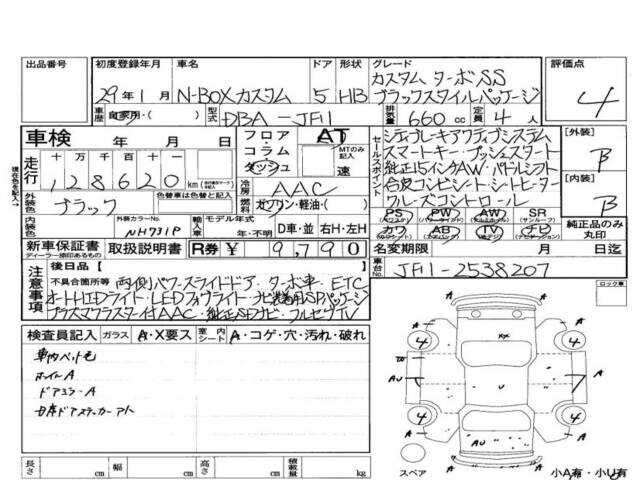 出品番号 初度登録年月 車名 ドア 形状 グレード 評価点
29年1月 N-BOXカスタム 5 HB カスタム ターボSS
ブラックスタイルパッケージ
4
車歴 自家用・( ) 型式 DBA-JF1 排気量 660cc 定員 4人
車検 年 月 日 フロア コラム ダッシュ AT MTのみ記入 速
走行 十万千百十一
128620 km
冷房 AAC
外装色 ブラック 色替車は色替前色記入 燃料 ガソリン・軽油・( )
外装カラーNo. NH731P 輸入車 モデル年式 年・不明 D車・並 右H・左H
セールスポイント
シティブレーキアクティブシステム
スマートキー・プッシュスタート
純正15インチAW・パドルシフト
合皮コンビシート・シートヒーター
クルーズコントロール
PS PW AW SR
(パワステ) (パワーウインドウ) (アルミホイル) (サンルーフ)
カワ AB TV ナビ
(エアバッグ) (ナビゲーション)
[外装] B
[内装] B
純正品のみ丸印
新車保証書 取扱説明書 R券 ¥ 9,790 名変期限 月 日迄
ディーラー捺印あるもの
後日品[ ] 車台No. JF11-2538207
注意事項
不具合箇所等 両側パワースライドドア・ターボ車・ETC
オートLEDライト・LEDフォグライト・ナビ装着用SPパッケージ
プラズマクラスター付AAC・純正SDナビ・フルセグTV
ロック車
検査員記入 ガラス A・X要ス 室内シート A・コゲ・穴・汚れ・破れ
車内ペット毛
ホイルA
ドアミラーA
XX
AU
A
AU
A
4
4
4
4
A
A
A
スペア
小A有・小U有
長さ cm 幅 cm 高さ cm 積載量 kg